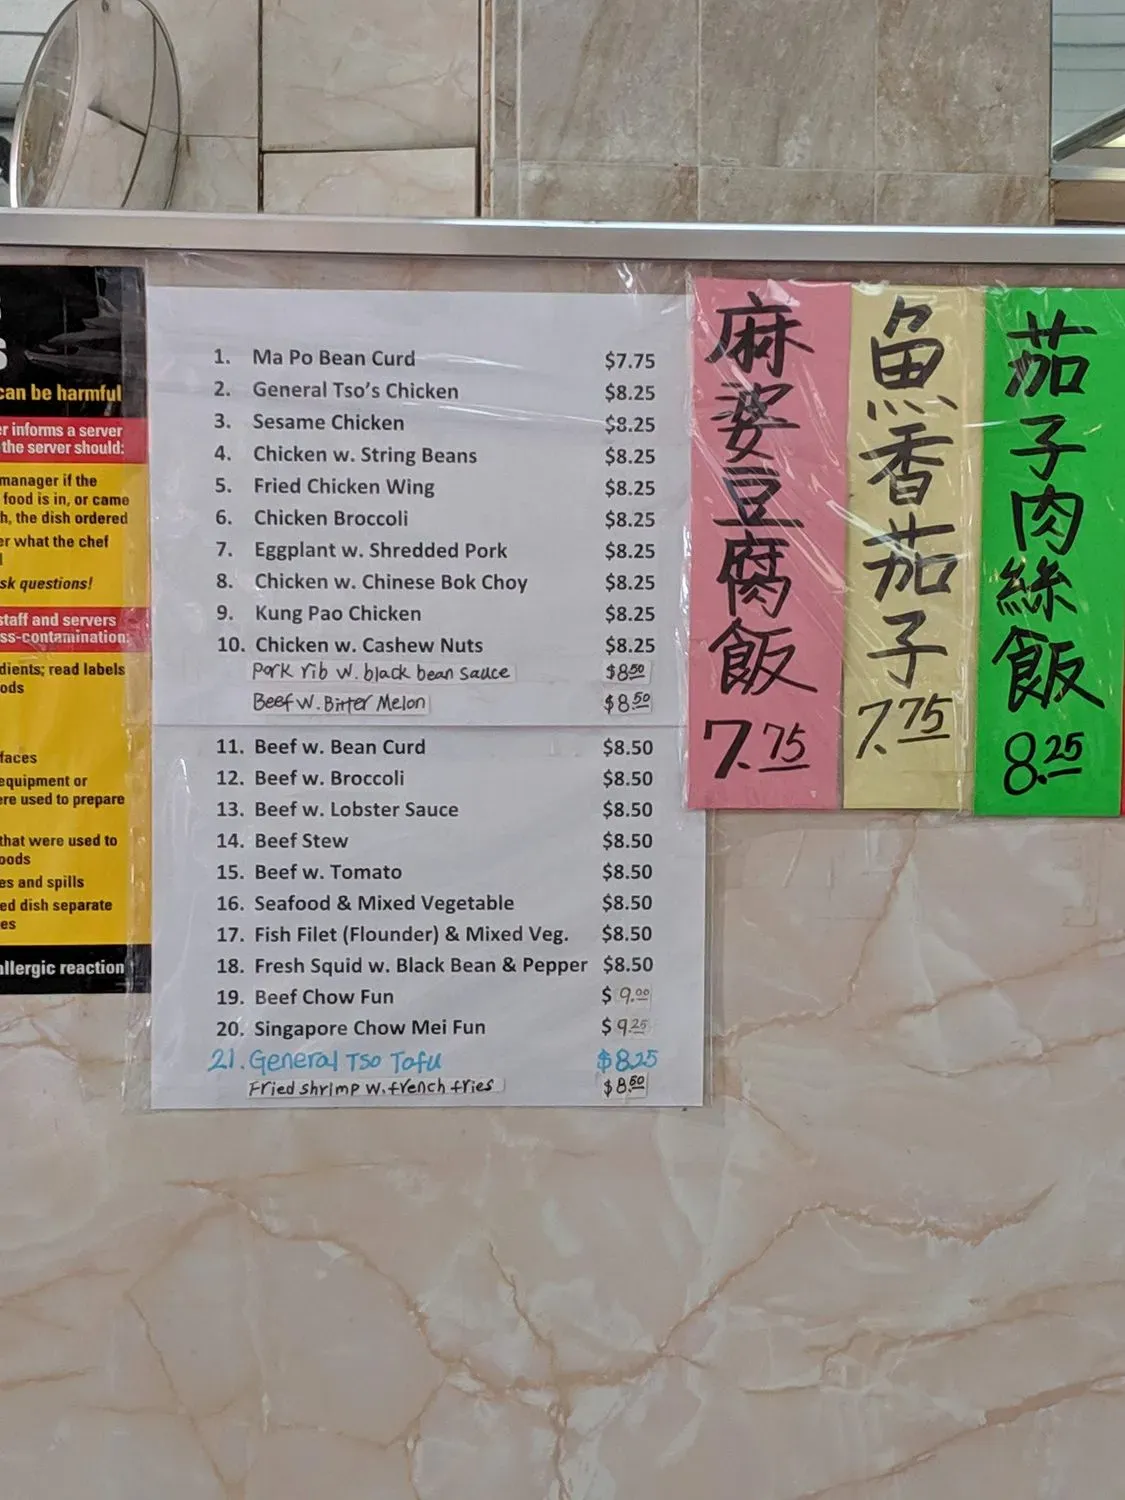 S
can be harmful
er informs a server
the server should:
manager if the
food is in, or came
h, the dish ordered
er what the chef
sk questions!
staff and servers
ss-contamination:
dients; read labels
ods
faces
equipment or
ere used to prepare
that were used to
oods
es and spills
ed dish separate
es
allergic reaction
1. Ma Po Bean Curd $7.75
2. General Tso's Chicken $8.25
3. Sesame Chicken $8.25
4. Chicken w. String Beans $8.25
5. Fried Chicken Wing $8.25
6. Chicken Broccoli $8.25
7. Eggplant w. Shredded Pork $8.25
8. Chicken w. Chinese Bok Choy $8.25
9. Kung Pao Chicken $8.25
10. Chicken w. Cashew Nuts $8.25
Pork rib w. black bean sauce $8.50
Beef w. Bitter Melon $8.50
11. Beef w. Bean Curd $8.50
12. Beef w. Broccoli $8.50
13. Beef w. Lobster Sauce $8.50
14. Beef Stew $8.50
15. Beef w. Tomato $8.50
16. Seafood & Mixed Vegetable $8.50
17. Fish Filet (Flounder) & Mixed Veg. $8.50
18. Fresh Squid w. Black Bean & Pepper $8.50
19. Beef Chow Fun $9.00
20. Singapore Chow Mei Fun $9.25
21. General Tso Tofu $8.25
Fried shrimp w. french fries $8.50
麻婆豆腐飯
7.75
魚香茄子
7.75
茄子肉絲飯
8.25